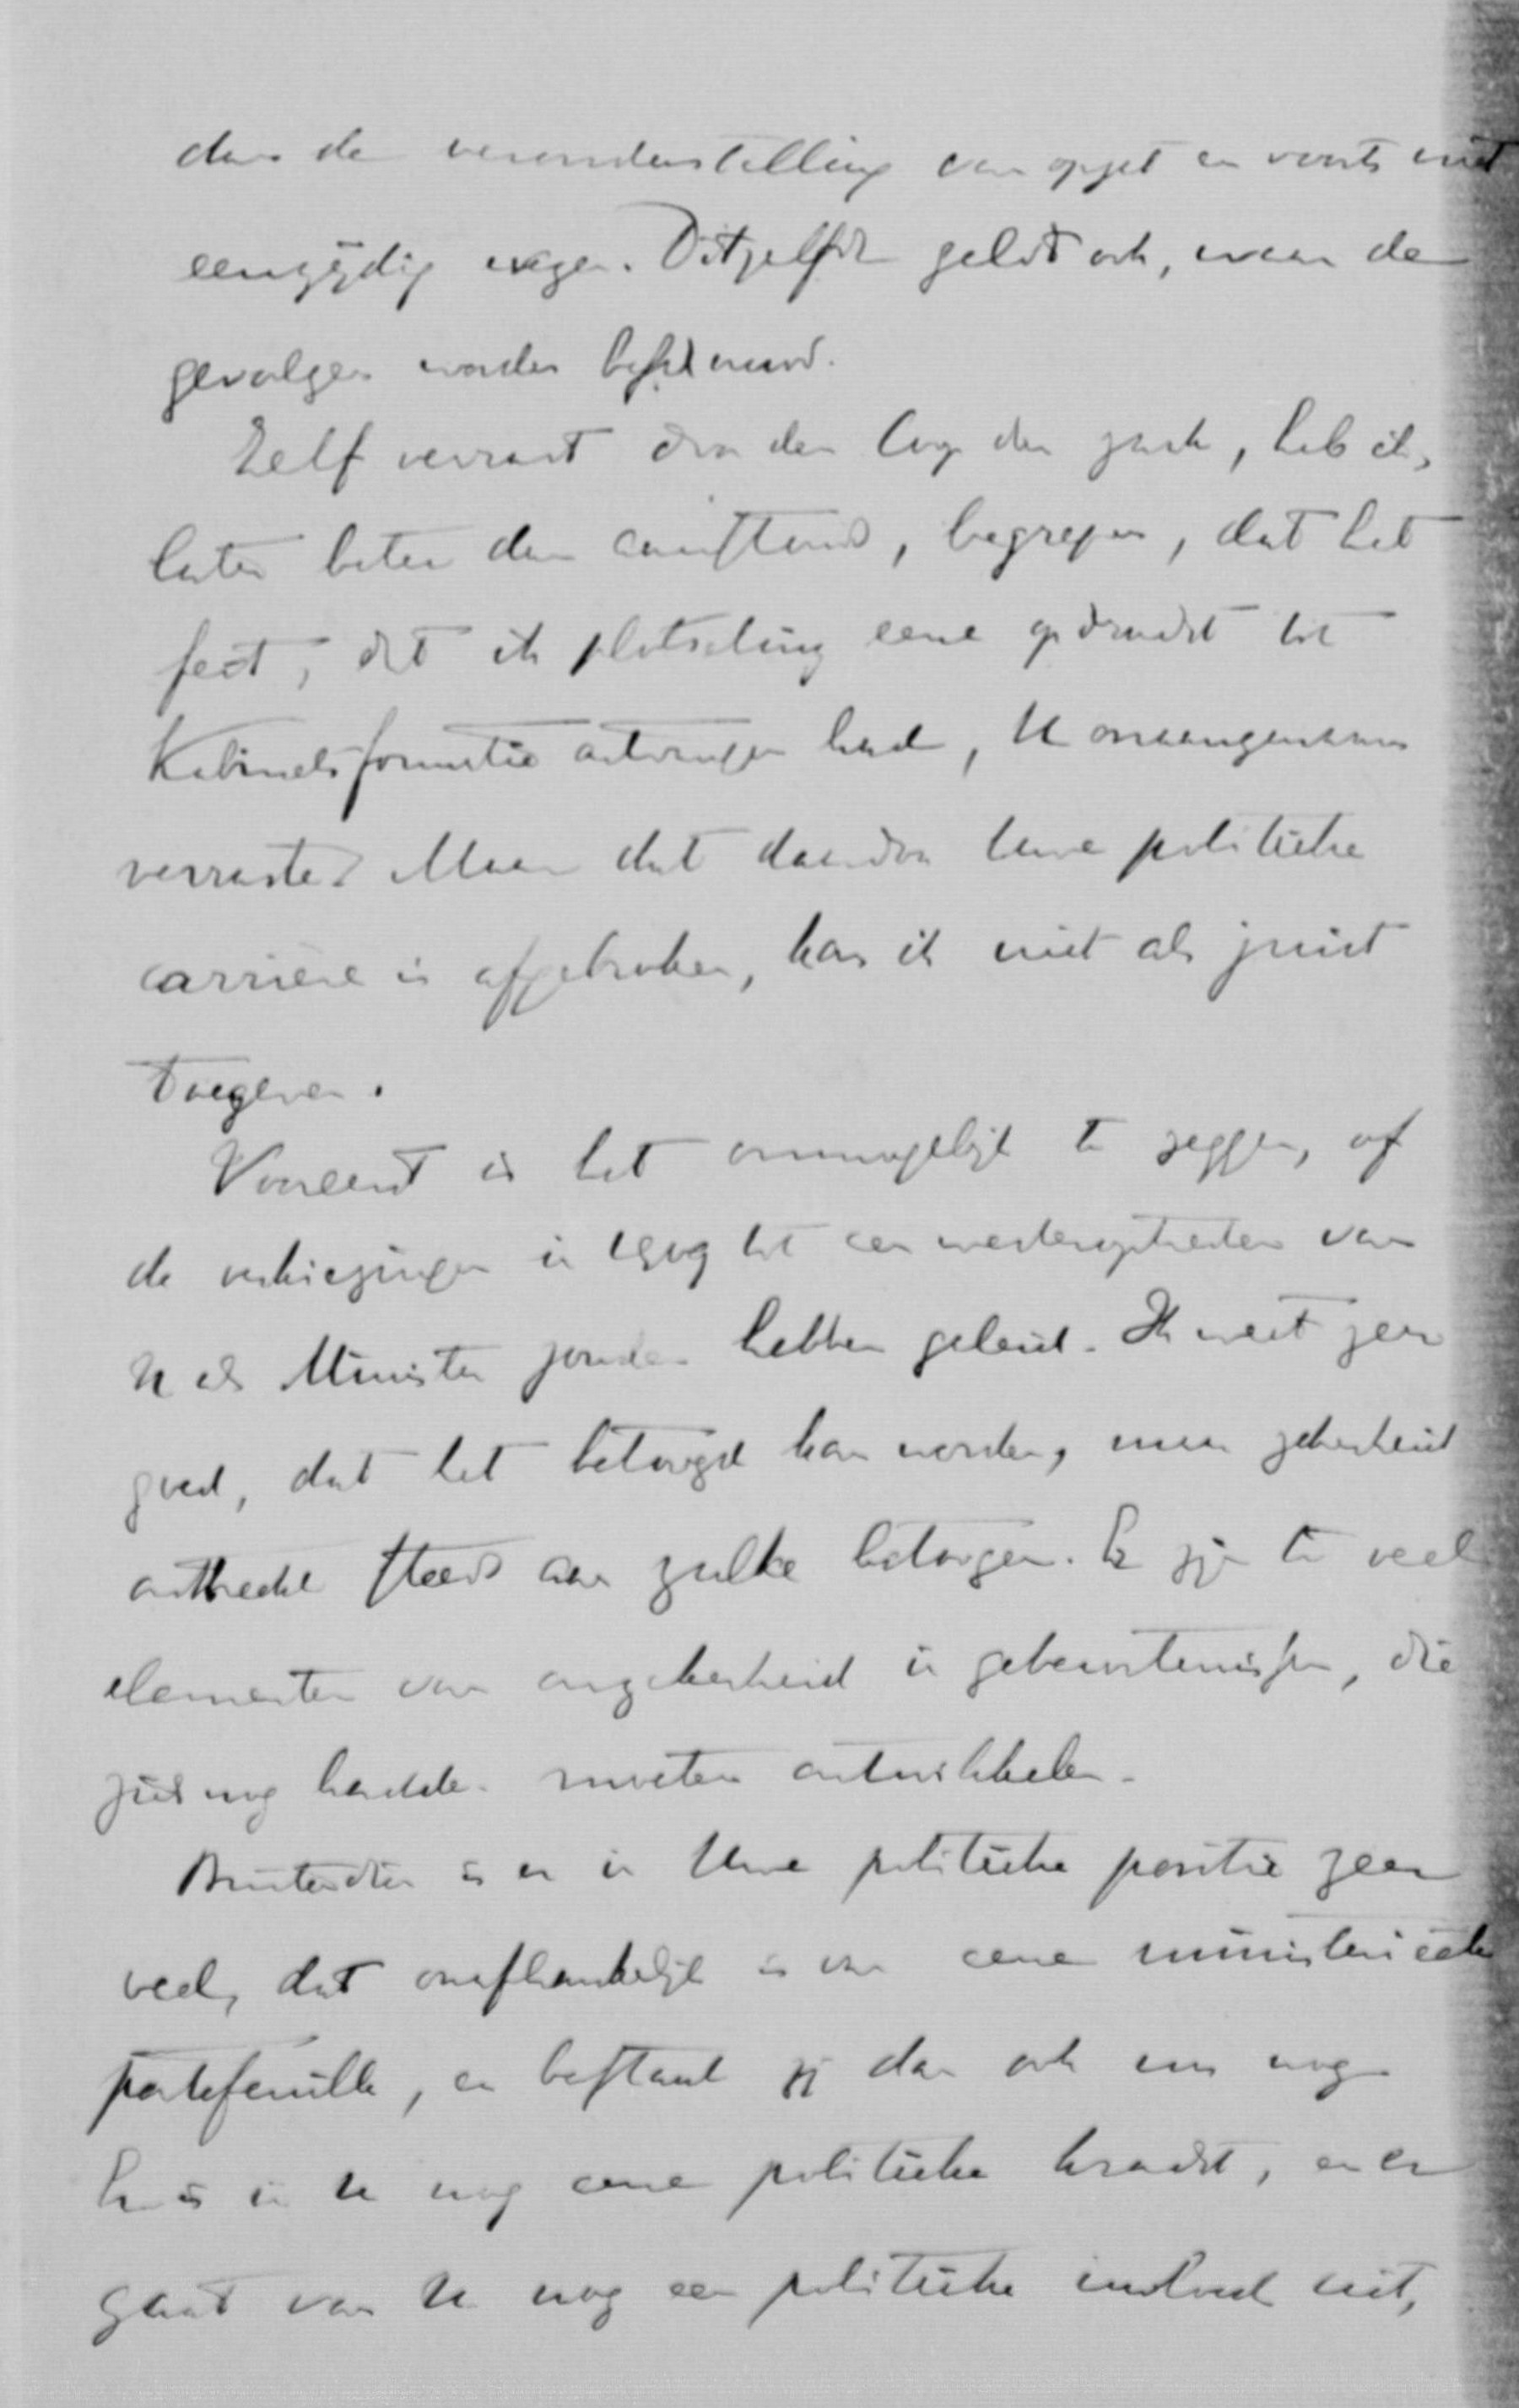 dan de veronderstelling van opzet en voorts niet
eenzijdig wegen. Ditzelfde geldt ook, waar de
gevolgen worden
Zelf verrast door den loop der zaak, heb ik,
later beter dan aanstonds, begrepen, dat het
feit, dat ik plotseling eene opdracht tot
Kabinetsformatie ontvangen had, U onaangenaam
verraste. Maar dat daardoor Uwe politieke
carrière is afgebroken, kan ik niet als juist
toegeven.
Vooreerst is het onmogelijk te zeggen, of
de verkiezingen in 1909 tot een wederoptreden van
U als Minister zouden hebben geleid. Ik weet zeer
goed, dat het betoogd kan worden, maar zekerheid
ontbreekt steeds aan zulke betoogen. Er zijn te veel
elementen van onzekerheid in gebeurtenissen, die
zich nog hadden moeten ontwikkelen.
Buitendien is er in Uwe politieke positie zeer
veel, dat onafhankelijk is van eene ministerieele
portefeuille, en bestaat zij dan ook nu nog.
Er is in U nog eene politieke kracht, en er
gaat van U nog een politieke invloed uit,